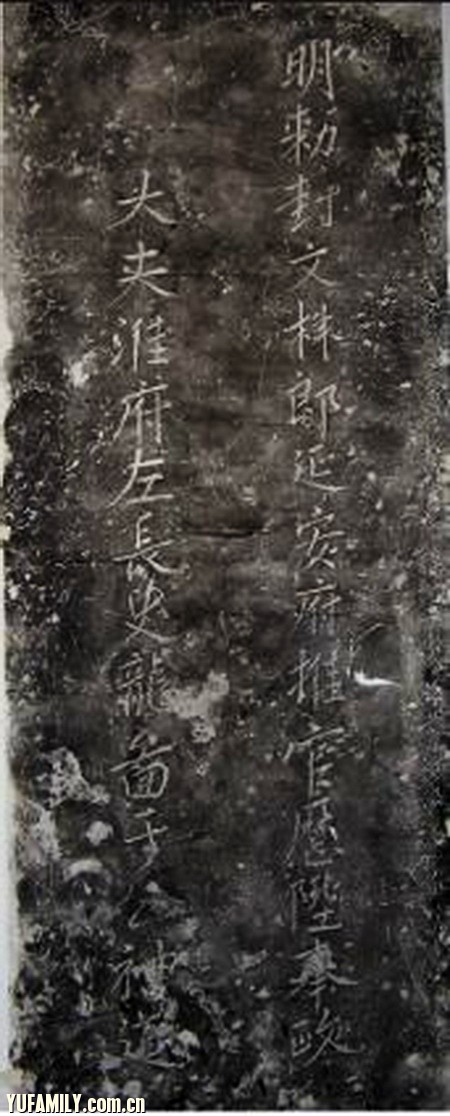 明勅封文林郎延安府推官歷陞奉政
大夫淮府左長史龍畣于公神道
YUFAMILY.com.cn